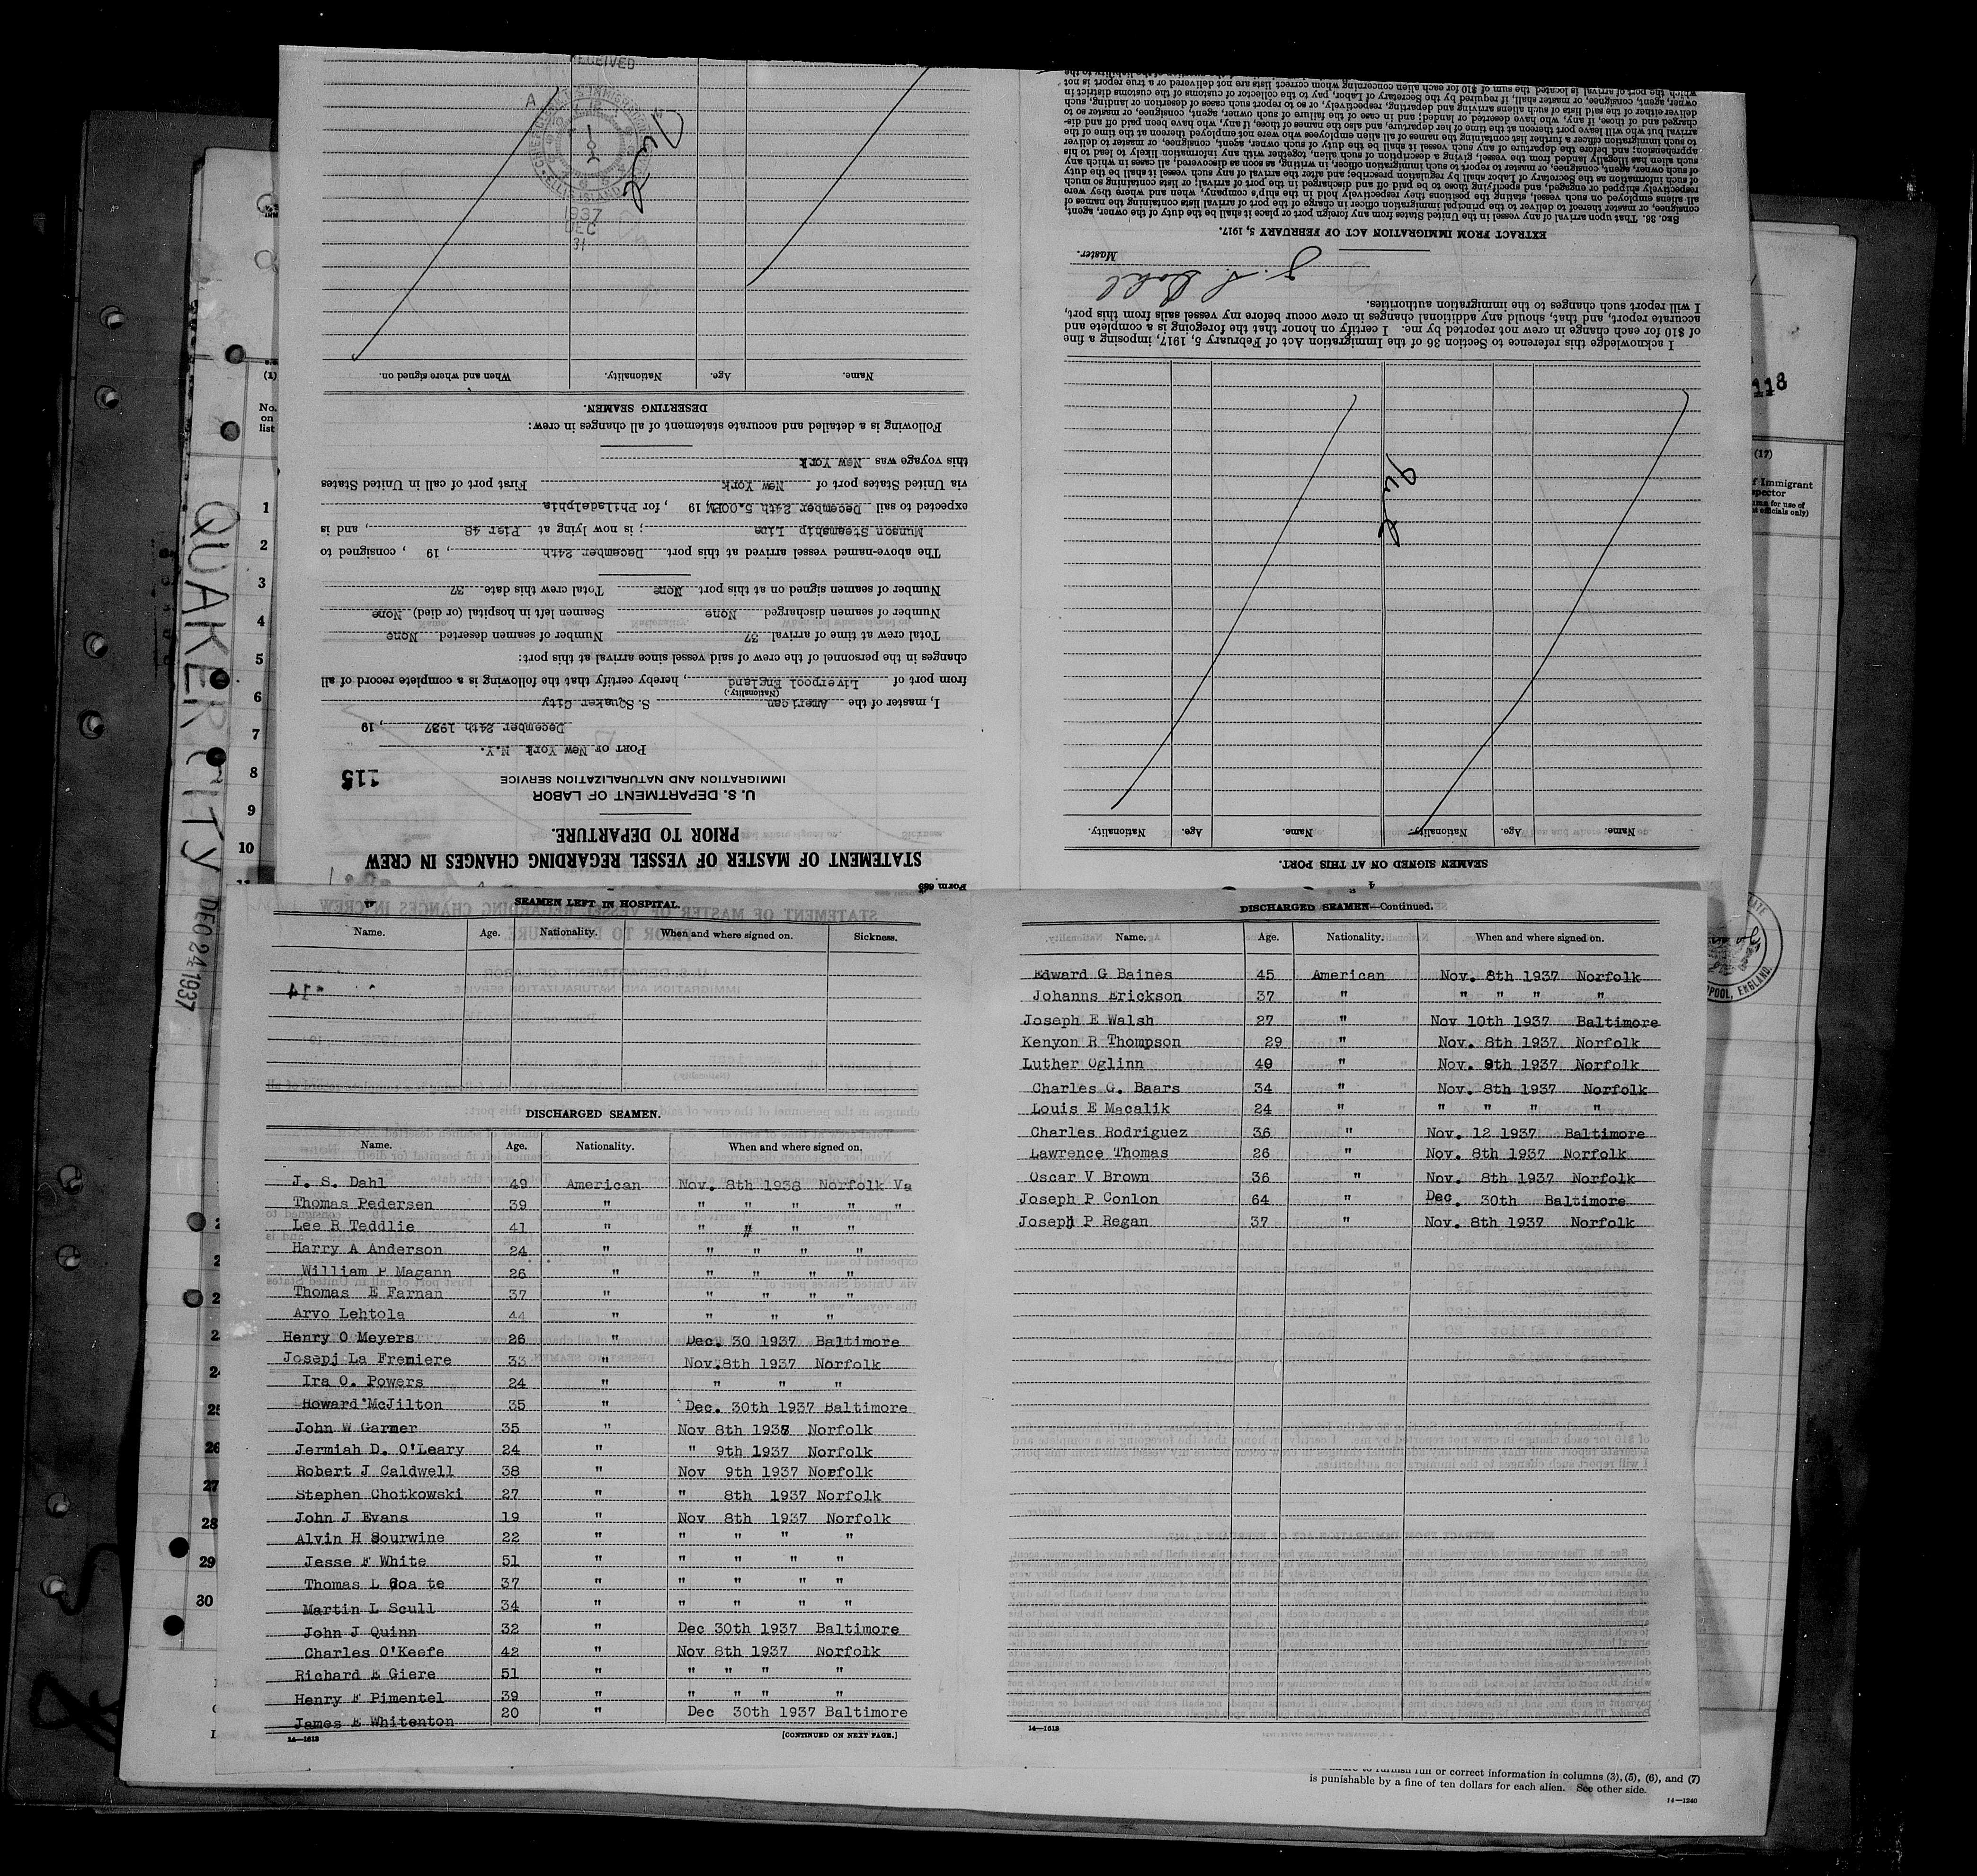 STATEMENT OF MASTER OF VESSEL REGARDING CHANGES IN CREW
PRIOR TO DEPARTURE.
U. S. DEPARTMENT OF LABOR
IMMIGRATION AND NATURALIZATION SERVICE
115
PORT OF New York N.Y.
December 24th 1937, 19
I, master of the American S. SQuaker City
(Nationality.)
from port of Liverpool England, hereby certify that the following is a complete record of all
changes in the personnel of the crew of said vessel since arrival at this port:
Total crew at time of arrival 37 Number of seamen deserted None
Number of seamen discharged None Seamen left in hospital (or died) None
Number of seamen signed on at this port None Total crew this date 37
The above-named vessel arrived at this port December 24th, 19 , consigned to
Munson Steamship Line ; is now lying at Pier 48, and is
expected to sail December 24th 5.00PM, 19 , for Philadelphia
via United States port of New York First port of call in United States
this voyage was New York
Following is a detailed and accurate statement of all changes in crew:
DESERTING SEAMEN.
Name. Age. Nationality. When and where signed on.
RECEIVED
ELLIS ISLAND
1937
DEC
31
SEAMEN SIGNED ON AT THIS PORT.
Name. Age. Nationality. Name. Age. Nationality.
I acknowledge this reference to Section 36 of the Immigration Act of February 5, 1917, imposing a fine
of $10 for each change in crew not reported by me. I certify on honor that the foregoing is a complete and
accurate report, and that, should any additional changes in crew occur before my vessel sails from this port,
I will report such changes to the immigration authorities.
J. S. Dahl
Master.
EXTRACT FROM IMMIGRATION ACT OF FEBRUARY 5, 1917.
SEC. 36. That upon arrival of any vessel in the United States from any foreign port or place it shall be the duty of the owner, agent,
consignee, or master thereof to deliver to the principal immigration officer in charge of the port of arrival lists containing the names of
all aliens employed on such vessel, stating the positions they respectively hold in the ship's company, when and where they were
respectively shipped or engaged, and specifying those to be paid off and discharged in the port of arrival; or lists containing so much
of such information as the Secretary of Labor shall by regulation prescribe; and after the arrival of any such vessel it shall be the duty
of such owner, agent, consignee, or master to report to such immigration officer, in writing, as soon as discovered, all cases in which any
such alien has illegally landed from the vessel, giving a description of such alien, together with any information likely to lead to his
apprehension; and before the departure of any such vessel it shall be the duty of such owner, agent, consignee, or master to deliver
to such immigration officer a further list containing the names of all alien employees who were not employed thereon at the time of the
arrival but who will leave port thereon at the time of her departure, and also the names of those, if any, who have been paid off and dis-
charged and of those, if any, who have deserted or landed; and in case of the failure of such owner, agent, consignee, or master so to
deliver either of the said lists of such aliens arriving and departing, respectively, or so to report such cases of desertion or landing, such
owner, agent, consignee, or master shall, if required by the Secretary of Labor, pay to the collector of customs of the customs district in
which the port of arrival is located the sum of $10 for each alien concerning whom correct lists are not delivered or a true report is not
SEAMEN LEFT IN HOSPITAL.
Name. Age. Nationality. When and where signed on. Sickness.
DISCHARGED SEAMEN.
Name. Age. Nationality. When and where signed on.
J. S. Dahl 49 American Nov. 8th 1938 Norfolk Va
Thomas Pedersen 39 " " " " " "
Lee R Teddlie 41 " " " " "
Harry A Anderson 24 " " " " "
William P Magann 26 " " " " "
Thomas E Farnan 37 " " " " "
Arvo Lehtola 44 " " " "
Henry O Meyers 26 " Dec. 30 1937 Baltimore
Josepj La Fremiere 33 " Nov.8th 1937 Norfolk
Ira O. Powers 24 " " " "
Howard McJilton 35 " Dec. 30th 1937 Baltimore
John W Garmer 35 " Nov 8th 1938 Norfolk
Jermiah D. O'Leary 24 " " 9th 1937 Norfolk
Robert J Caldwell 38 " Nov 9th 1937 Norfolk
Stephen Chotkowski 27 " " 8th 1937 Norfolk
John J Evans 19 " Nov 8th 1937 Norfolk
Alvin H Sourwine 22 " " " " "
Jesse F White 51 " " " " "
Thomas L Coa te 37 " " " " "
Martin L Scull 34 " " " " "
John J Quinn 32 " Dec 30th 1937 Baltimore
Charles O'Keefe 42 " Nov 8th 1937 Norfolk
Richard E Giere 51 " " " " "
Henry F Pimentel 39 " " " " "
James E Whitenton 20 " Dec 30th 1937 Baltimore
14—1613 [CONTINUED ON NEXT PAGE.]
DISCHARGED SEAMEN—Continued.
Name. Age. Nationality. When and where signed on.
Edward G Baines 45 American Nov. 8th 1937 Norfolk
Johanns Erickson 37 " " " " "
Joseph E Walsh 27 " Nov 10th 1937 Baltimore
Kenyon R Thompson 29 " Nov. 8th 1937 Norfolk
Luther Oglinn 40 " Nov. 8th 1937 Norfolk
Charles G. Baars 34 " Nov. 8th 1937 Norfolk
Louis E Macalik 24 " " " " "
Charles Rodriguez 36 " Nov. 12 1937 Baltimore
Lawrence Thomas 26 " Nov. 8th 1937 Norfolk
Oscar V Brown 36 " Nov. 8th 1937 Norfolk
Joseph P Conlon 64 " Dec. 30th Baltimore
Joseph P Regan 37 " Nov. 8th 1937 Norfolk
14—1613
QUAKER CITY DEC 24 1937
(1)
No.
on
list
1
2
3
4
5
6
7
8
9
10
11
24
25
26
27
28
29
30
118
(17)
is punishable by a fine of ten dollars for each alien. See other side.
14—1240